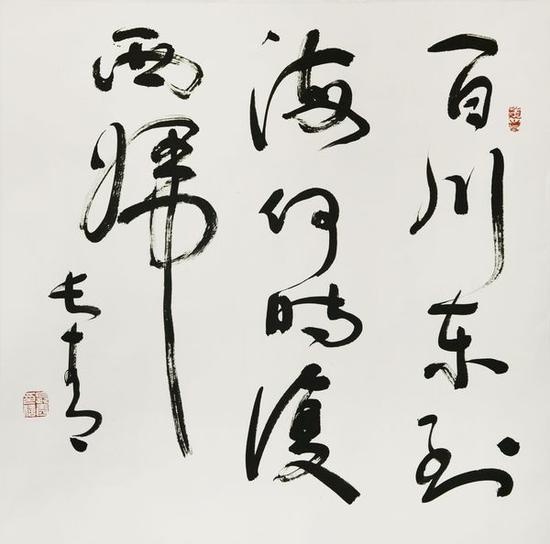 百川東到
海何時復
西歸